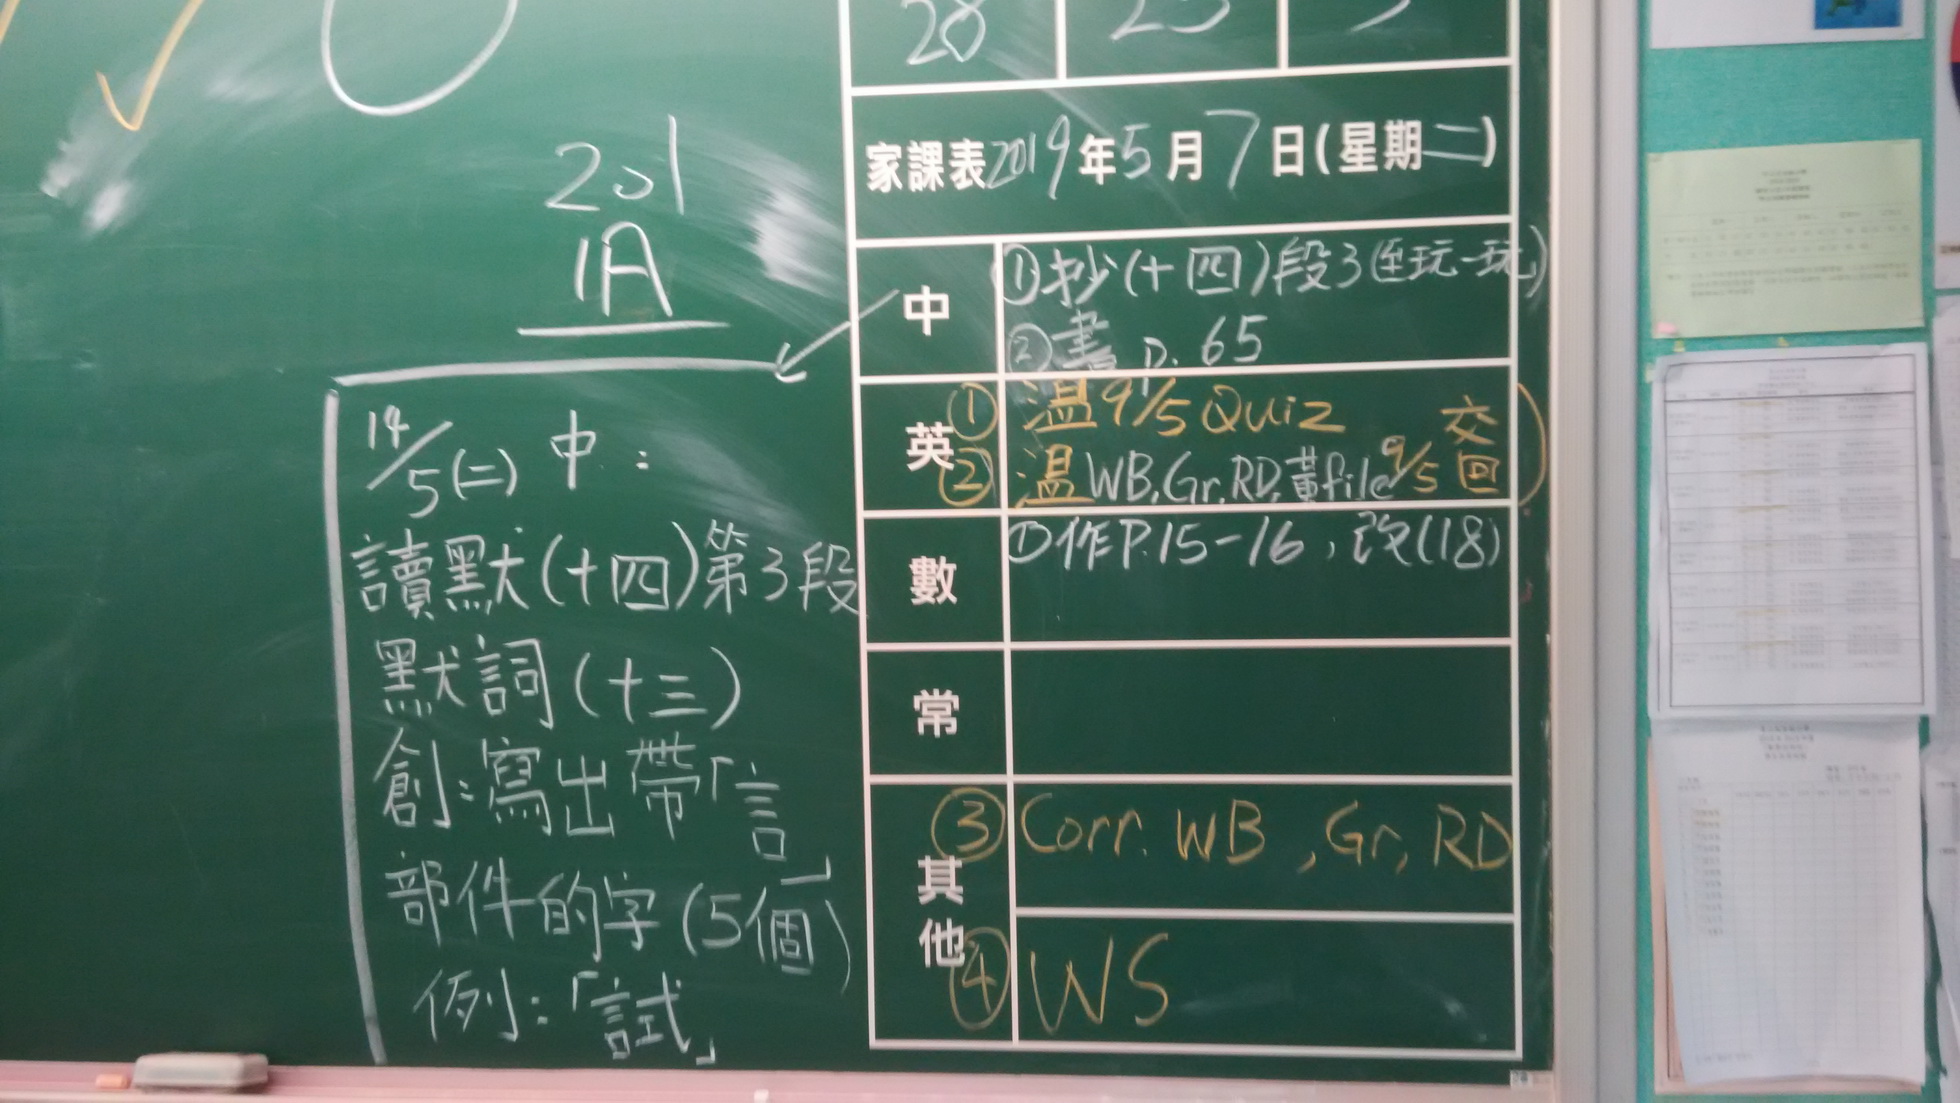 28
家課表2019年5月7日(星期二)
中
①抄(十四)段3(至玩一玩)
②書 p. 65
英
①溫9/5 Quiz
②溫WB, Gr, RD, 黃file 9/5 交回
數
①作P.15-16，改(18)
常
其他
③Corr. WB , Gr, RD
④WS
201
1A
14/5(二) 中：
讀默(十四)第3段
默詞(十三)
創：寫出帶「言」
部件的字(5個)
例：「試」